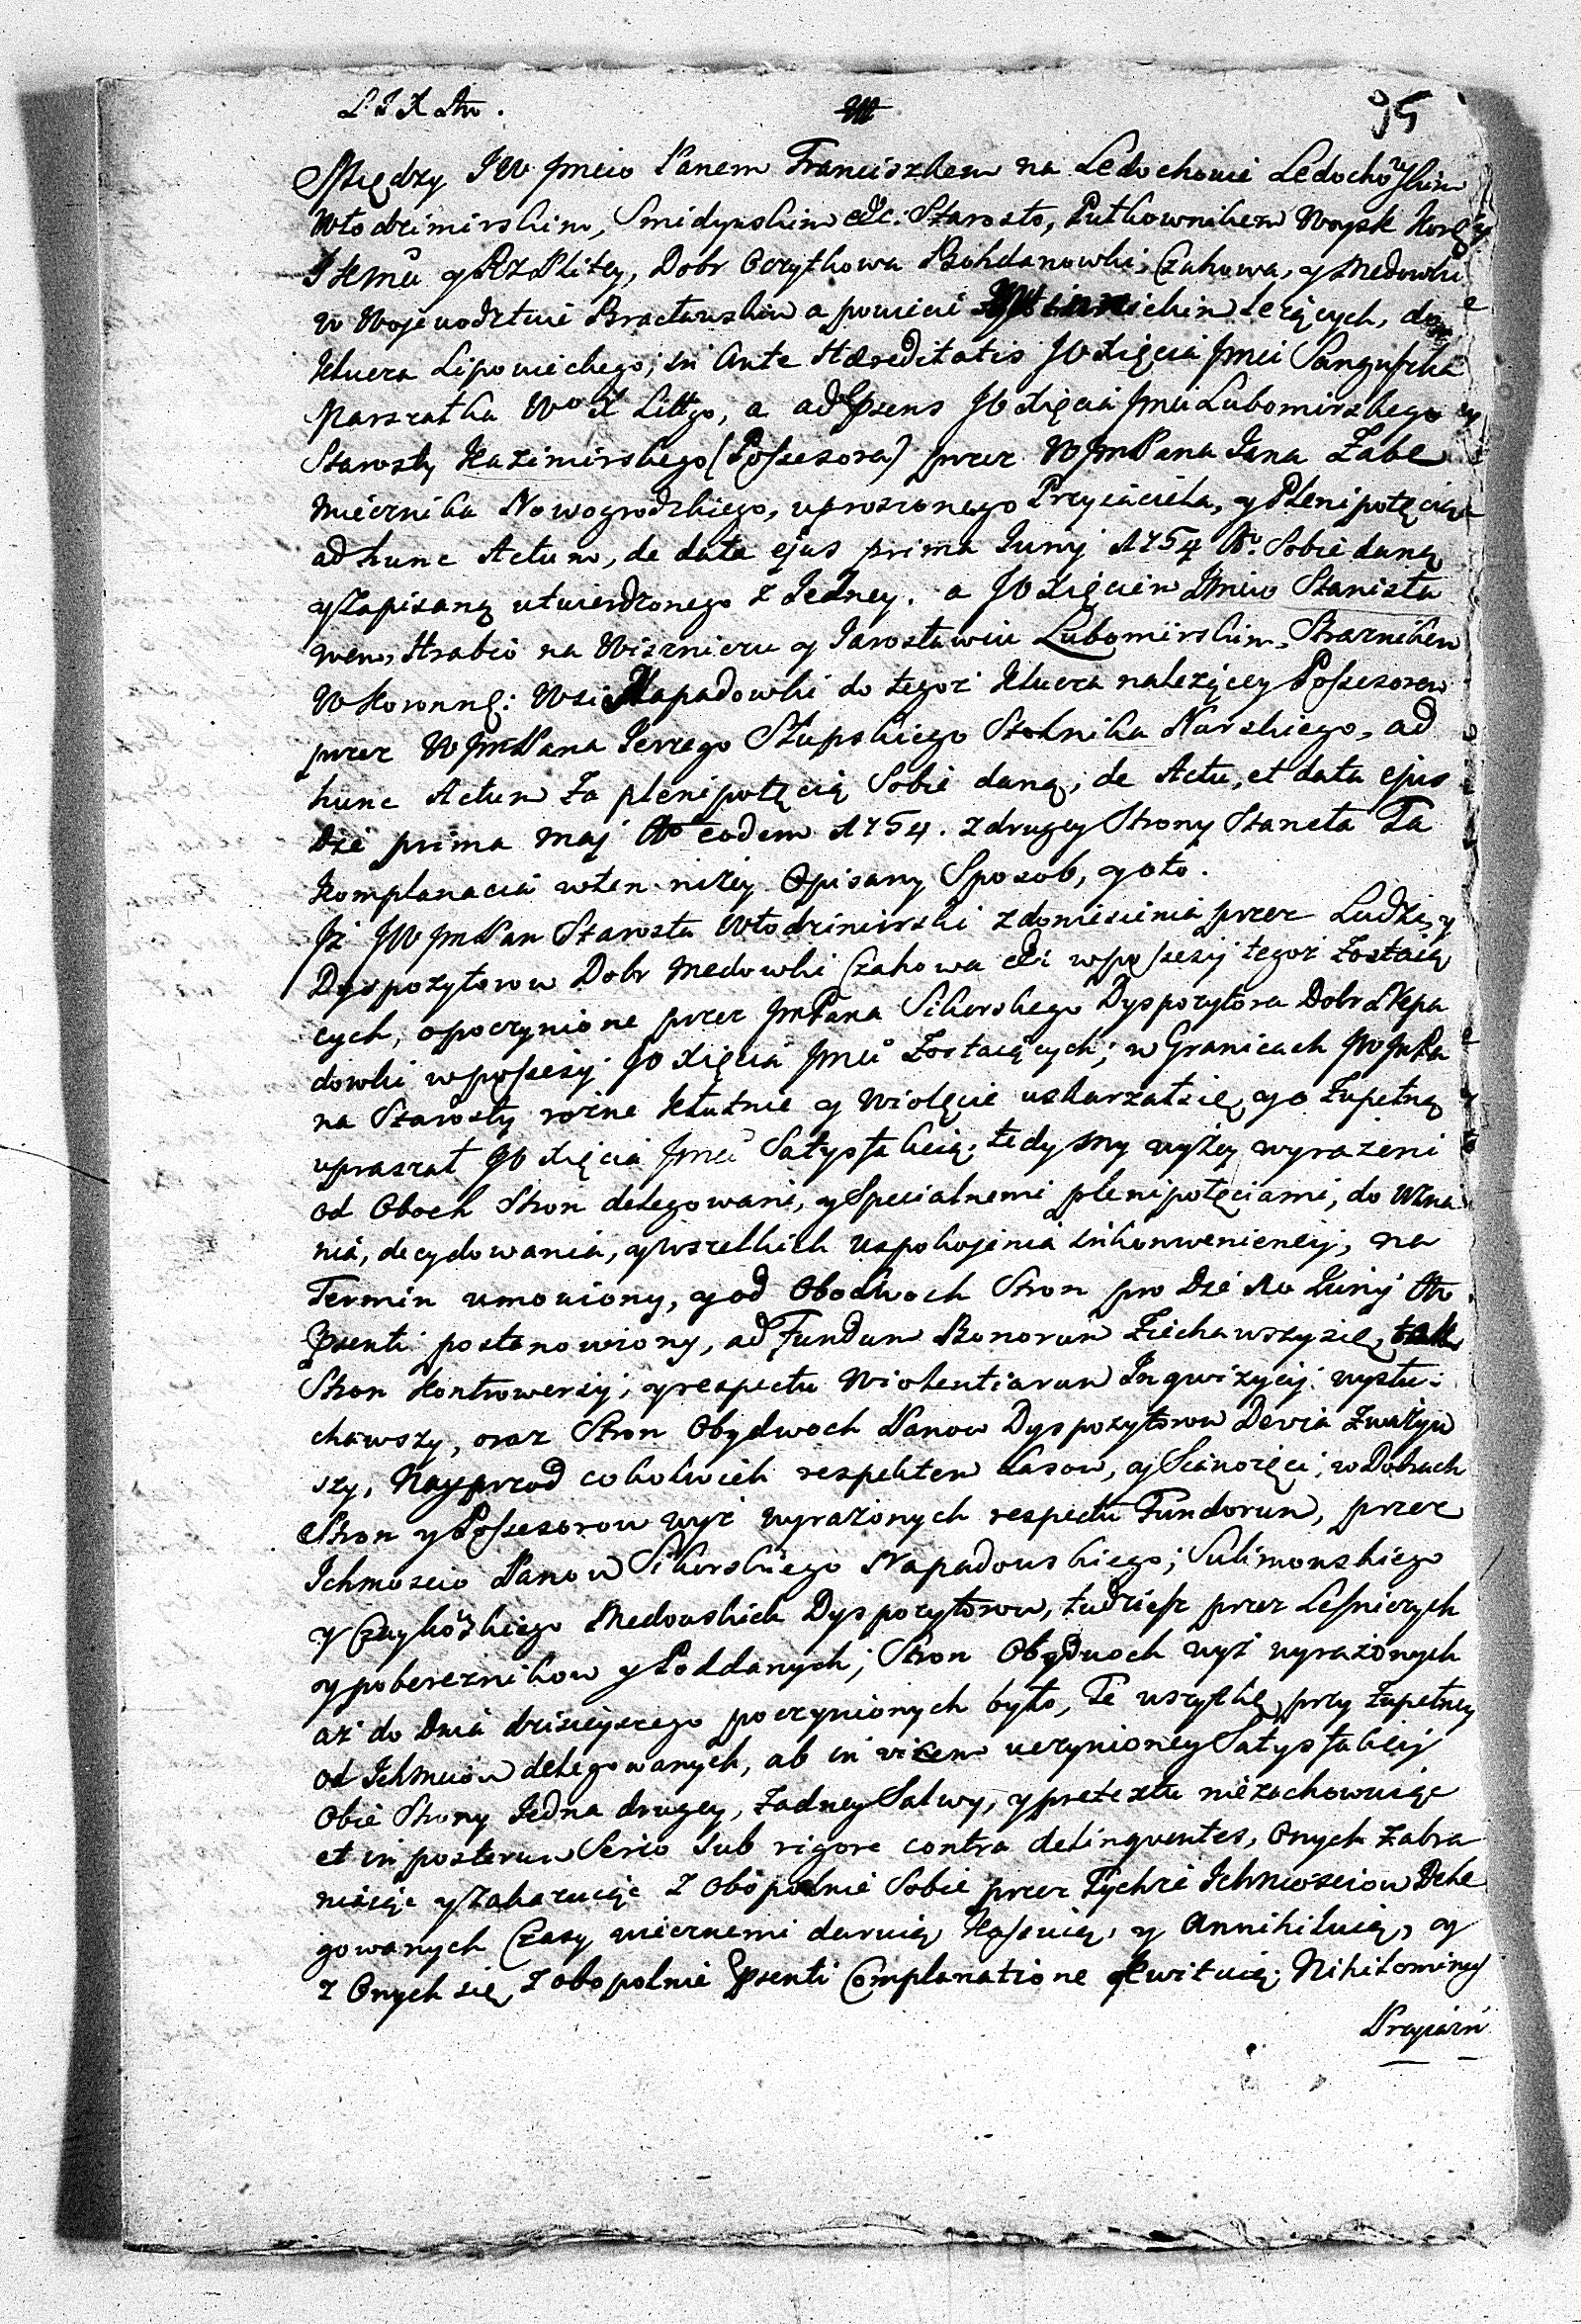 95
Między JW Jmcio Panem Franciszkem na Ledochowie Ledochowskim
Włodzimirskim, Smidynskim etc. Starosto, Pułkownikem Woysk
y RzPlitey, Dobr Oczytkowa Bohdanowki, Czahowa, y Medowki
w Wojewodztwie Bracławskim a powieci leżących, do
Klucza Lipowieckego, in Ante Hæreditatis JO Xięcia Jmci Sanguszka
Marszałka Wo X Littgo, a ad Psens JO Xięcia Jmci Lubomirskego
Starosty Kazimirskego (Possesora) przez WJmPana Jana Zabe
Miecznika Nowogrodzkiego, uproszonego Przyiaciela, y Plenipotęcią
ad hunc Actum, de data ejus prima Junij 1754 Ao. Sobie daną
y Zapisaną utwierdzonego z Jedney. a JO Xięciem Jmcio Stanisła
wem, Hrabio na Wiszniczu y Jarosławiu Lubomirskim, Strażnikem
W Koronnę: Wsi Napadowki do tegoż Klucza należącey Possesorem
przez WJmPana Jerzego Słupskiego Stolnika Narskiego, ad
hunc Actum za plenipotęcią Sobie daną, de Actu, et data ejus
Die prima Maj Ao eodem 1754. z drugey Strony Staneła Ta
Komplanacia w ten niżey Opisany Sposob, y oto.
Jż JW JmPan Starosta Włodzimirski z doniesienia przez Ludzi, y
Dyspozytorow Dobr Medowki Czahowa etc w possesij tegoż Zostaią
cych, o poczynione przez JmPana Sikorskego Dyspozytora Dobr Napa
dowki w possesij JO Xięcia Jmci Zostaiących, w Granicach JWJmPa
na Starosty rożne Kłutnie y Wiolęcie uskarzał się, y o Zupełną
upraszał JO Xięcia Jmci Satysfakcią, tedy My wyżey wyrażeni
od Oboch Stron delegowani, y Specialnemi plenipotęciami, do Uzna
nia, decydowania, y wszelkich Uspokojenia inkonweniencij, na
Termin umowiony, y od Obodwoch Stron pro Die Junij Ao
Psenti postanowiony, ad Fundum Bonorum Ziechawszy się,
Stron Kontrowersij, y respectu Wiolentiarum Inqwizycij wysłu-
chawszy, oraz Stron Obydwoch Panow Dyspozytorow Devia Zważyw
szy, Nayprzod cokolwiek respektem Lasow, y Sianożęci, w Dobrach
Stron y Possesorow wyż wyrażonych respectu Fundorum, przez
Ichmoscio Panow Sikorskiego Napadowskiego; Sulimowskiego
y Czaykowskiego Medowskich Dyspozytorow, tudziesz przez Lesniczych
y pobereznikow y Poddanych; Stron Obydwoch wyż wyrażonych
aż do Dnia dzisieyszego poczynionych było, Te wszytkę przy Zupełney
od Ichmciow delegowanych, ab in vicem uczynioney Satysfakcij
Obie Strony Jedna drugey, Zadney Salwy, y pretextu niezachowuiąc
et in posterum Serio Sub rigore contra delinquentes, Onych Zabra
niaiąc y Zakazuiąc Z Obopolnie Sobie przez Tychże Ichmosciow Dele
gowanych Czasy wiecznemi daruią Kassuią, y Annihiluią, y
z Onych się, Zobopolnie Psenti Complanatione qwituią; Nihilominus
Przyiażń